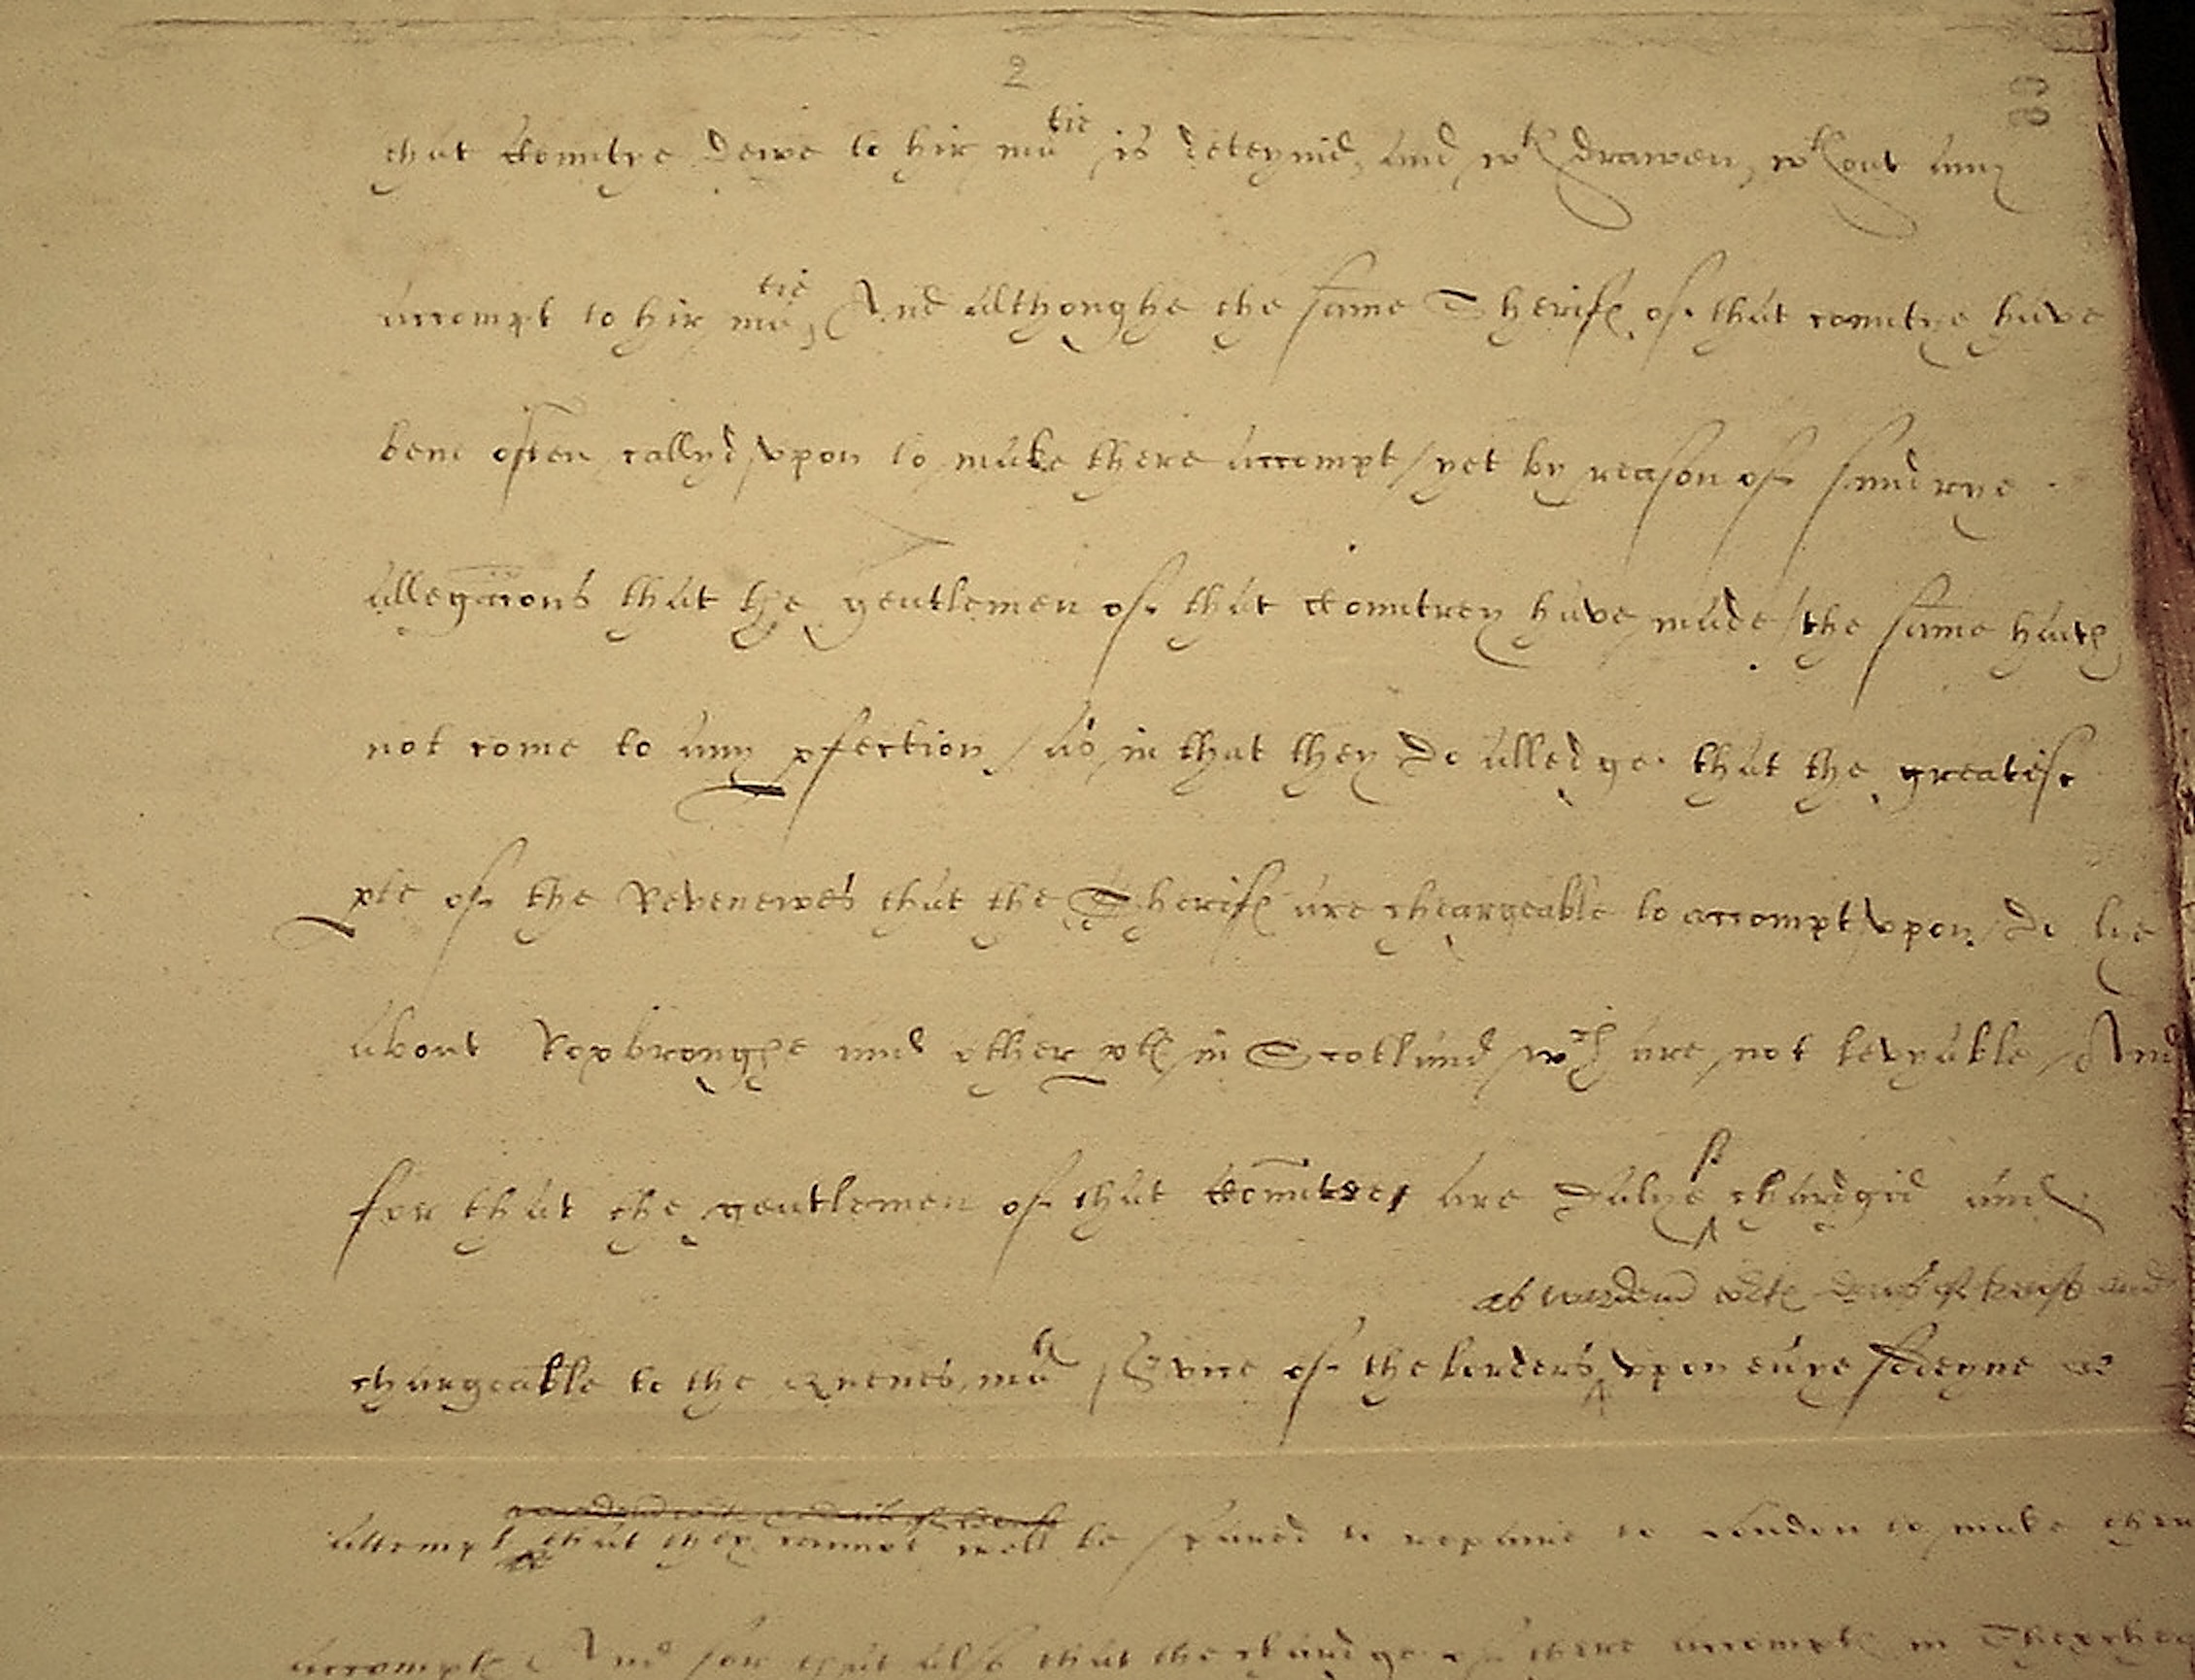 2
89
that Countye dewe to hir matie is deteynid, and wth drawen, wthout any
accompt to hir matie, And althoughe the same Sherifes of that countye have
bene often callyd vpon to make there accompt / yet by reason of sundrye
allegacions that the gentlemen of that Countrey have made / the same hathe
not come to any pfection / as in that they do alledge that the greatist
pte of the Revenewes that the Sherifes are chargeable to accompt vpon / do lie
about Roxbroughe and other ptes in Scotland wch are not levyable / And
for that the gentlemen of that Countrey are dalye chardgid and
chargeable to the Quenes matie S'vice of the borders vpon eu'ye foreyne
attempt that they cannot well be spared to repaire to London to make ther
accompte And for that also that the chardge of there accompte in Thexcheq